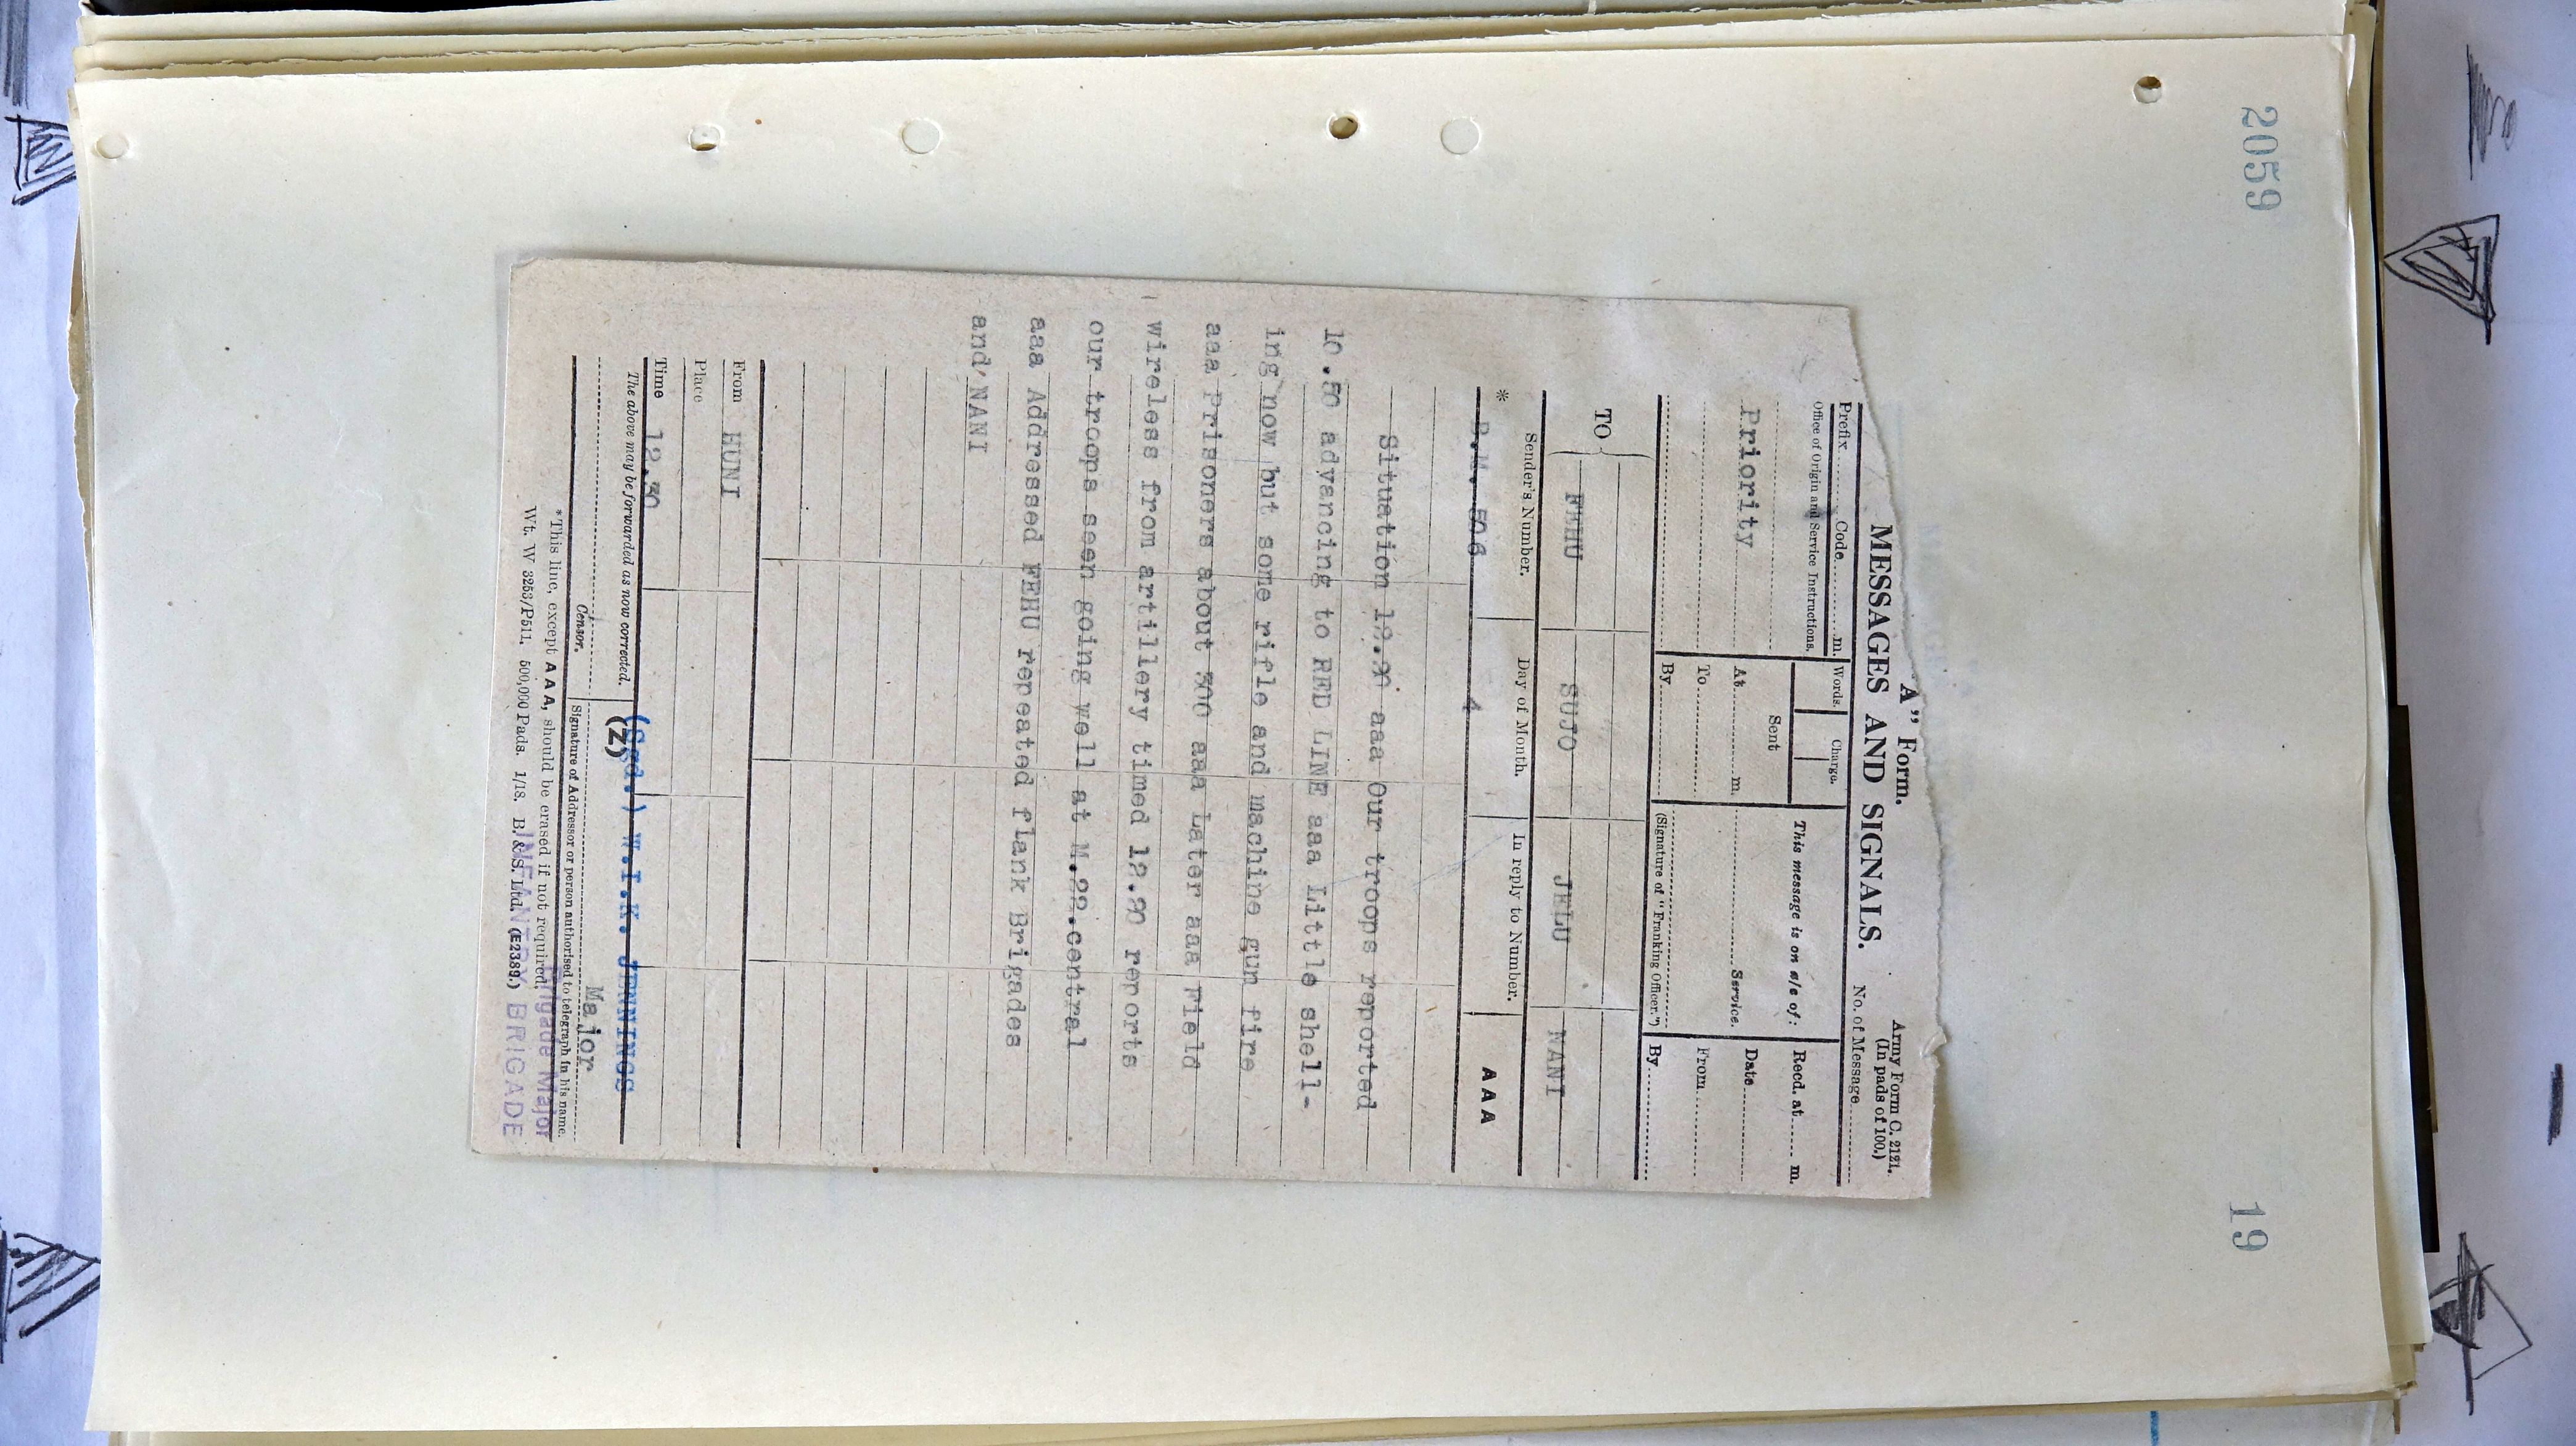 2059
19
A" Form.
Army Form C. 2121.
(In pads of 100.)
MESSAGES AND SIGNALS.
No. of Message
Prefix Code m. Words. Charge.
Office of Origin and Service Instructions.
This message is on a/c of:
Recd. at m.
Sent
Priority
At m.
Service.
Date
To
From
By
(Signature of "Franking Officer.")
By
TO FEHU SUJO JELU NANI
* Sender's Number. Day of Month. In reply to Number. AAA
B.M. 506 4
Situation 12.20 aaa Our troops reported
10.50 advancing to RED LINE aaa Little shell-
ing now but some rifle and machine gun fire
aaa Prisoners about 300 aaa Later aaa Field
wireless from artillery timed 12.20 reports
our troops seen going well at M.22.central
aaa Addressed FEHU repeated flank Brigades
and NANI
From HUNI
Place
Time 12.30
The above may be forwarded as now corrected.
(Sgd.) W.I.K. JENNINGS
(Z)
Major
Censor.
Signature of Addressor or person authorised to telegraph in his name.
*This line, except AAA, should be erased if not required.
Brigade Major
Wt. W 3253/P511. 500,000 Pads. 1/18. B. & S. Ltd. (E2389.)
INFANTRY BRIGADE